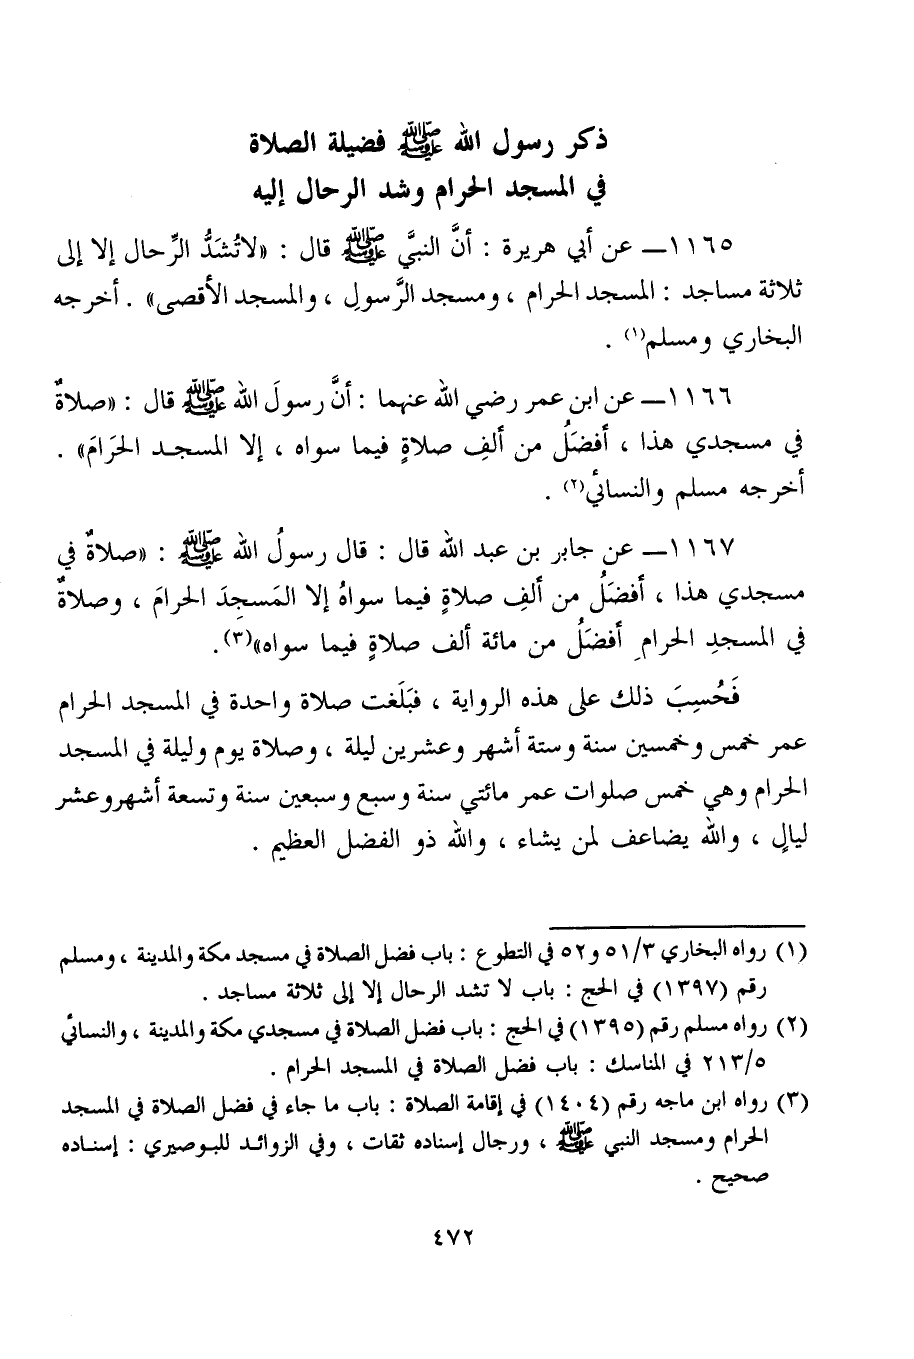 ذكر رسول الله ﷺ فضيلة الصلاة
في المسجد الحرام وشد الرحال إليه
١١٦٥ــ عن أبي هريرة : أنَّ النبيَّ ﷺ قال : «لاتُشَدُّ الرِّحال إلا إلى
ثلاثة مساجد : المسجد الحرام ، ومسجد الرَّسولِ ، والمسجد الأقصى» . أخرجه
البخاري ومسلم(١) .
١١٦٦ــ عن ابن عمر رضي الله عنهما : أنَّ رسولَ الله ﷺ قال : «صلاةٌ
في مسجدي هذا ، أفضَلُ من ألفِ صلاةٍ فيما سواه ، إلا المسجد الحَرَامَ» .
أخرجه مسلم والنسائي(٢) .
١١٦٧ــ عن جابر بن عبد الله قال : قال رسولُ الله ﷺ : «صلاةٌ في
مسجدي هذا ، أفضَلُ من ألفِ صلاةٍ فيما سواهُ إلا المَسجِدَ الحرامَ ، وصلاةٌ
في المسجدِ الحرامِ أفضَلُ من مائة ألف صلاةٍ فيما سواه»(٣).
فَحُسِبَ ذلك على هذه الرواية ، فبَلَغت صلاة واحدة في المسجد الحرام
عمر خمس وخمسين سنة وستة أشهر وعشرين ليلة ، وصلاة يوم وليلة في المسجد
الحرام وهي خمس صلوات عمر مائتي سنة وسبع وسبعين سنة وتسعة أشهروعشر
ليالٍ ، والله يضاعف لمن يشاء ، والله ذو الفضل العظيم .
(١) رواه البخاري ٥١/٣ و٥٢ في التطوع : باب فضل الصلاة في مسجد مكة والمدينة ، ومسلم
رقم (١٣٩٧) في الحج : باب لا تشد الرحال إلا إلى ثلاثة مساجد .
(٢) رواه مسلم رقم (١٣٩٥) في الحج : باب فضل الصلاة في مسجدي مكة والمدينة ، والنسائي
٢١٣/٥ في المناسك : باب فضل الصلاة في المسجد الحرام .
(٣) رواه ابن ماجه رقم (١٤٠٤) في إقامة الصلاة : باب ما جاء في فضل الصلاة في المسجد
الحرام ومسجد النبي ﷺ ، ورجال إسناده ثقات ، وفي الزوائد للبوصيري : إسناده
صحيح .
٤٧٢